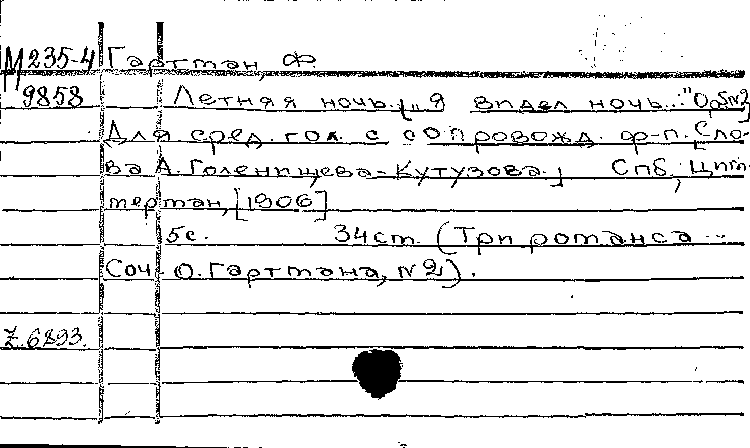 М 235-4 Гартман, Ф.
9858 Летняя ночь. [„Я видел ночь..." Op.5 №2]
Для сред. гол. с сопровожд. ф-п. [Сло-
ва А. Голенищева-Кутузова.] Спб, Цим-
мерман, [1906]
5с. 34ст. (Три романса...
Соч. Ф. Гартмана, №2).
Z.6893.